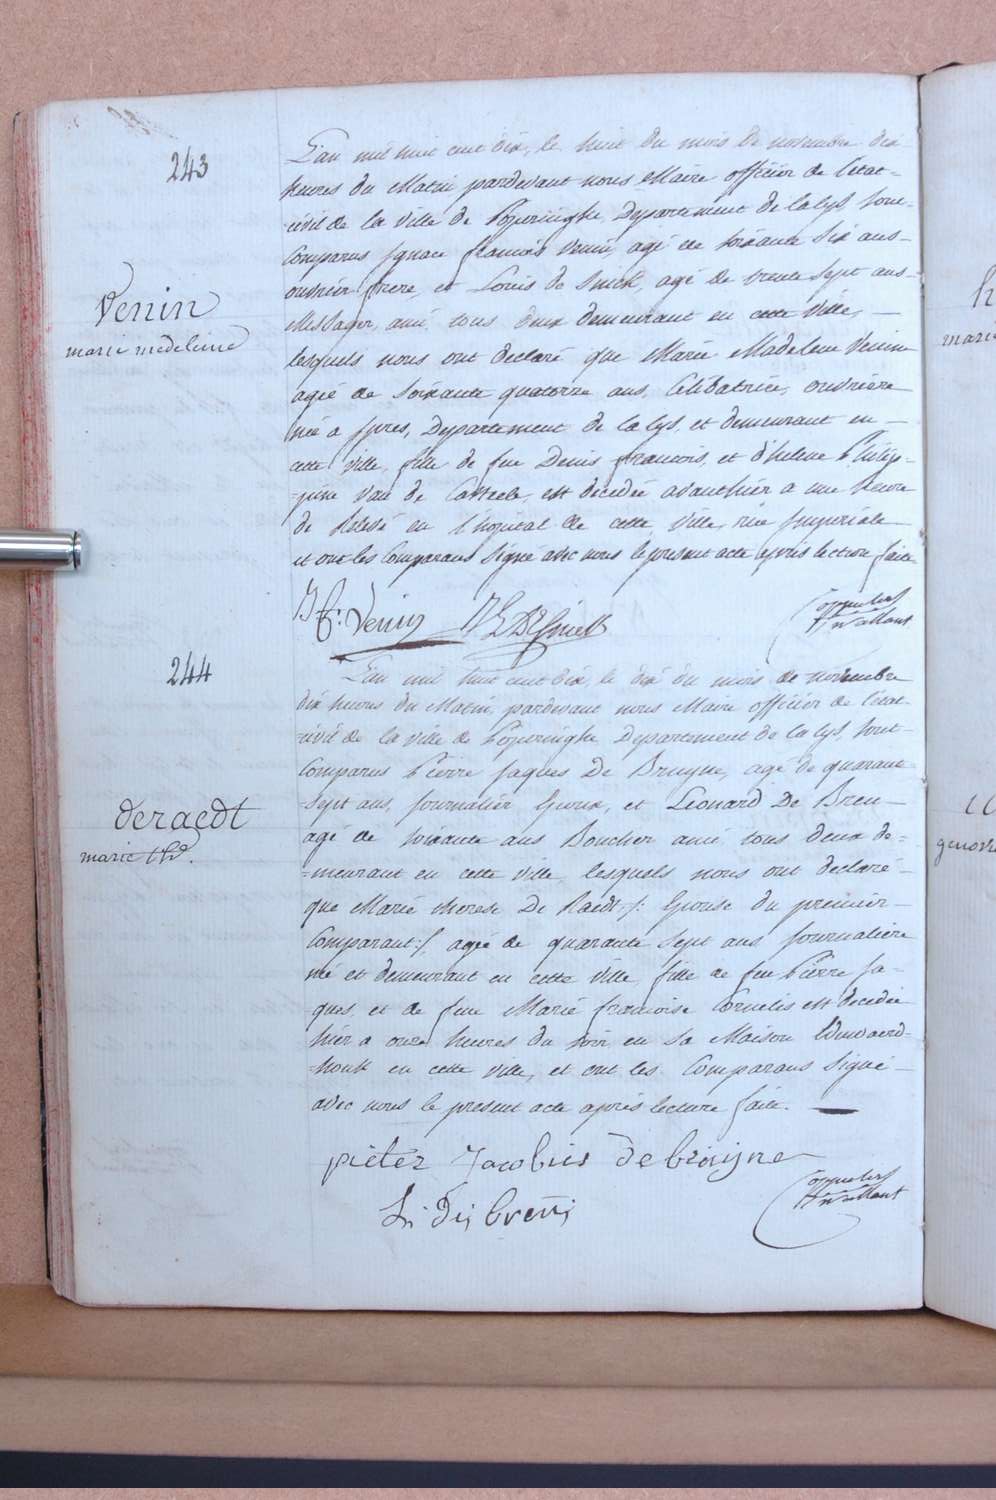 243
L'an mil huit cent dix, le huit du mois de novembre dix
heures du Matin pardevant nous Maire officier de l'état=
=civil de la ville de Poperinghe, Departement de la lys, sont
Comparus Ignace francois Venin, agé de soixante six ans=
ouvrier frere, et Louis de Smidt, agé de trente sept ans=
Messager, ami, tous deux demeurant en cette ville, —
Venin
marie medeleine
lesquels nous ont declaré que Marie Madeleine Venin
agée de soixante quatorze ans, Celibatrice, ouvriere
née a Ypres, Departement de la lys, et demeurant en —
cette ville, fille de feu Denis francois, et d'helene Philip=
=pine Van de Casteele, est decedée avanthier a une heure
de Relevé en l'hopital de cette ville, rue Imperiale
et ont les Comparans Signé avec nous le present acte après lection faite
J f: Venin
Vaillant
244
L'an mil huit cent dix, le dix du mois de novembre
dix heures du Matin, pardevant nous Maire officier de l'état=
=civil de la ville de Poperinghe, Departement de la lys, sont
Comparus Pierre Jaques De Bruyne, agé de quarante
sept ans, journalier Epoux, et Léonard De Breu —
deraedt
marie thr.
agé de soixante ans Boucher ami, tous deux de=
=meurant en cette ville, lesquels nous ont declaré=
que Marie therese De Raedt /: Epouse du premier
Comparant :/, agée de quarante Sept ans journaliere
né et demeurant en cette ville, fille de feu Pierre Ja=
=ques, et de feue Marie francoise Cornelis est decedée
hier a onze heures du soir, en sa Maison
=houk en cette ville, et ont les Comparans Signé —
avec nous le present acte après lecture faite.
pieter Jacobus de bruijne
L: De breu
Vaillant
marie